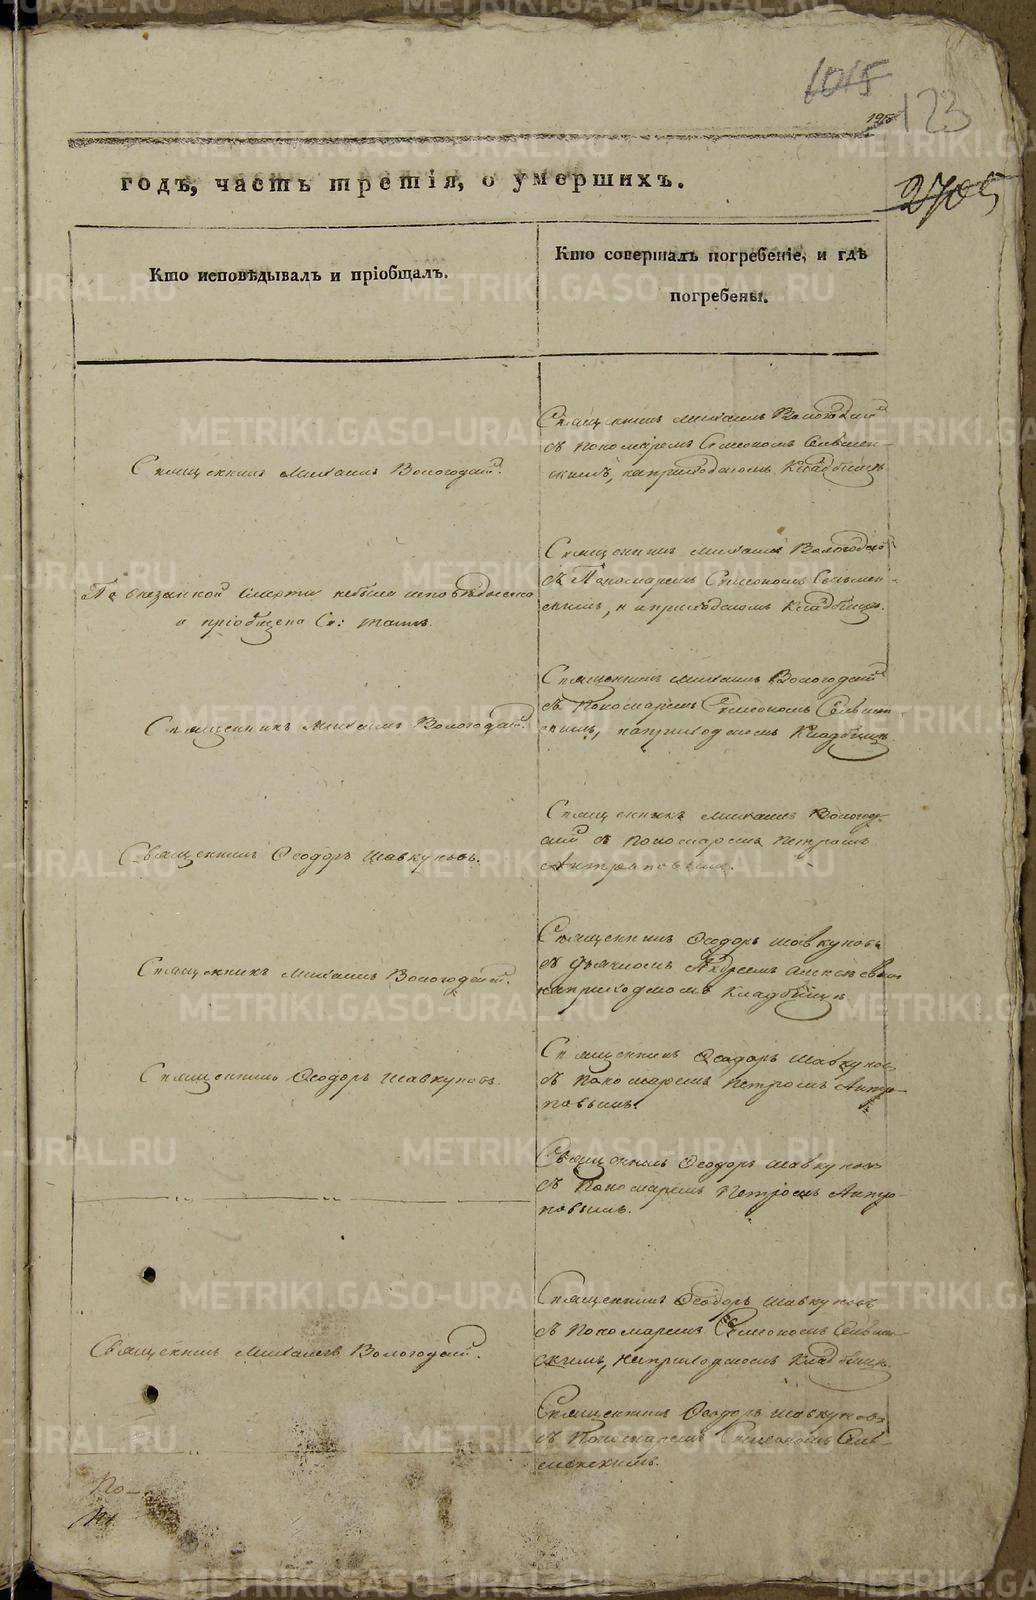 1015
123
2705
годъ, часть третія, о умершихъ.
Кто исповѣдывалъ и пріобщалъ.
Кто совершалъ погребеніе, и гдѣ
погребены.
Священникъ Михаилъ Вологодскій
съ Пономаремъ Симеономъ
скимъ, на приходскомъ Кладбищѣ
Священникъ Михаилъ Вологодскій.
Священникъ Михаилъ Вологодскій
съ Пономаремъ Симеономъ
скимъ, на приходскомъ Кладбищѣ.
По внезапной смерти небыла исповѣдована
и пріобщена Св: таинъ.
Священникъ Михаилъ Вологодскій
съ Пономаремъ Симеономъ
скимъ, на приходскомъ Кладбищѣ.
Священникъ Михаилъ Вологодскій.
Священникъ Михаилъ Вологод-
скій съ Пономаремъ Петромъ
Антроповымъ.
Священникъ Ѳеодоръ Шавкуновъ.
Священникъ Ѳеодоръ Шавкуновъ
съ Дьячкомъ Андреемъ
на приходскомъ Кладбищѣ
Священникъ Михаилъ Вологодскій.
Священникъ Ѳеодоръ Шавкуновъ
съ Пономаремъ Петромъ Антро-
повымъ.
Священникъ Ѳеодоръ Шавкуновъ.
Священникъ Ѳеодоръ Шавкуновъ
съ Пономаремъ Петромъ Антро-
повымъ.
Священникъ Ѳеодоръ Шавкуновъ
съ Пономаремъ Симеономъ
скимъ, на приходскомъ Кладбищѣ.
Священникъ Михаилъ Вологодскій.
Священникъ Ѳеодоръ Шавкуновъ
съ Пономаремъ Симеономъ
По-
METRIKI.GASO-URAL.RU